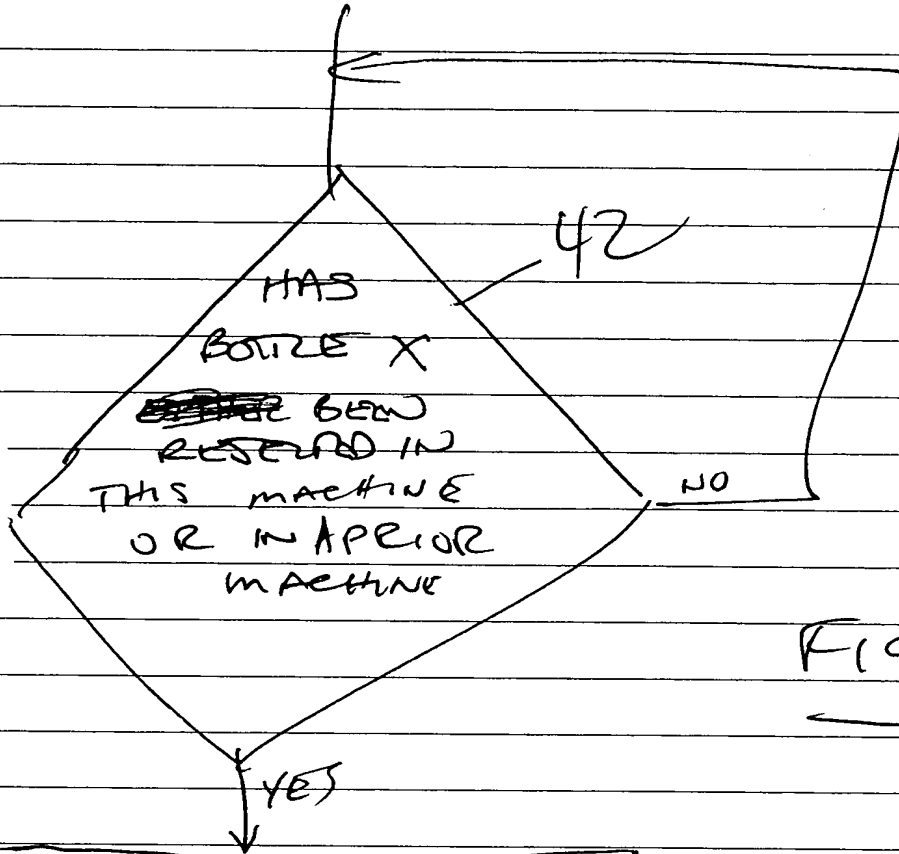 42
HAS
BOTTLE X
BEEN
REJECTED IN
THIS MACHINE
OR IN A PRIOR
MACHINE
NO
FIG
YES